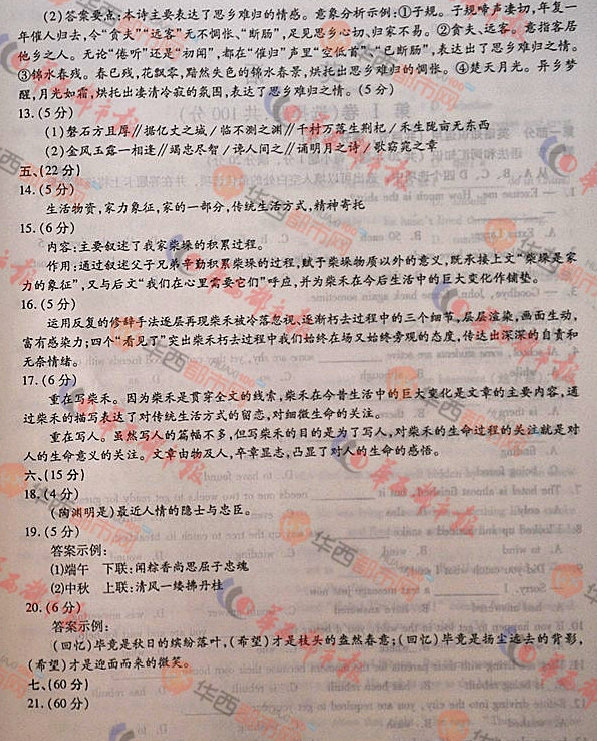 (2)答案要点:本诗主要表达了思乡难归的情感。意象分析示例:①子规。子规啼声凄切,年复一
年催人归去,令“贪夫”“远客”无不惆怅、“断肠”,足见思乡心切、归家不易。②贪夫、远客。意指客居
他乡之人。无论“倦听”还是“初闻”,都在“催归”声里“空低首”、“已断肠”,表达出了思乡难归之情。
③锦水春残。春已残,花飘零,黯然失色的锦水春景,烘托出思乡难归的惆怅。④楚天月光。异乡梦
醒,月光如霜,烘托出凄清冷寂的氛围,表达了思乡难归之情。(5分)
13.(5分)
(1)磐石方且厚∥据亿丈之城∕临不测之渊∥千村万落生荆杞∕禾生陇亩无东西
(2)金风玉露一相逢∥竭忠尽智∕谗人间之∥诵明月之诗∕歌窈窕之章
五、(22分)
14.(5分)
生活物资,家力象征,家的一部分,传统生活方式,精神寄托
15.(6分)
内容:主要叙述了我家柴垛的积累过程。
作用:通过叙述父子兄弟辛勤积累柴垛的过程,赋于柴垛物质以外的意义,既承接上文“柴垛是家
力的象征”,又与后文“我们在心里需要它们”呼应,并为柴禾在今后生活中的巨大变化作铺垫。
16.(5分)
运用反复的修辞手法逐层再现柴禾被冷落忽视、逐渐朽去过程中的三个细节,层层渲染,画面生动,
富有感染力;四个“看见了”突出柴禾朽去过程中我们始终在场又始终旁观的态度,传达出深深的自责和
无奈情绪。
17.(6分)
重在写柴禾。因为柴禾是贯穿全文的线索,柴禾在今昔生活中的巨大变化是文章的主要内容,通
过柴禾的描写表达了对传统生活方式的留恋,对细微生命的关注。
重在写人。虽然写人的篇幅不多,但写柴禾的目的是为了写人,对柴禾的生命过程的关注就是对
人的生命意义的关注。文章由物及人,卒章显志,凸显了对人的生命的感悟。
六、(15分)
18.(4分)
(陶渊明是)最近人情的隐士与忠臣。
19.(5分)
答案示例:
(1)端午　下联:闻粽香尚思屈子忠魂
(2)中秋　上联:清风一缕拂丹桂
20.(6分)
答案示例:
(回忆)毕竟是秋日的缤纷落叶,(希望)才是枝头的盎然春意;(回忆)毕竟是扬尘远去的背影,
(希望)才是迎面而来的微笑。
七、(60分)
21.(60分)